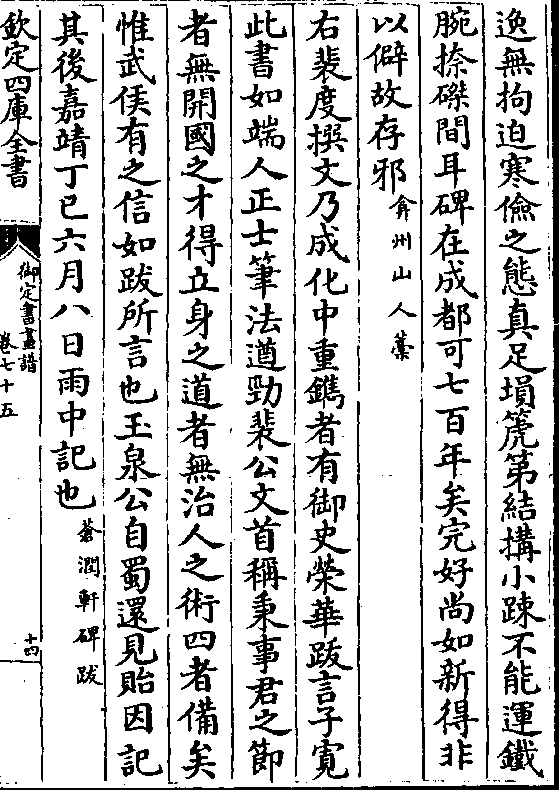 逸無拘迫寒儉之態真足塤篪第結搆小踈不能運鐵
腕捺磔間耳碑在成都可七百年矣完好尚如新得非
以僻故存邪弇州山人藁
右裴度撰文乃成化中重鐫者有御史榮華跋言子寛
此書如端人正士筆法遒勁裴公文首稱秉事君之節
者無開國之才得立身之道者無治人之術四者備矣
惟武侯有之信如跋所言也玉泉公自蜀還見貽因記
其後嘉靖丁巳六月八日雨中記也蒼潤軒碑跋
欽定四庫全書
御定書畫譜
卷七十五
十四